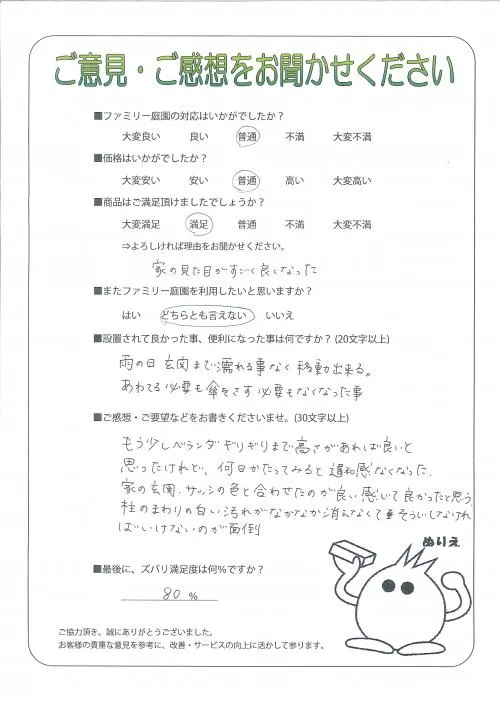 ご意見・ご感想をお聞かせください
■ファミリー庭園の対応はいかがでしたか？
大変良い 良い 普通 不満 大変不満
■価格はいかがでしたか？
大変安い 安い 普通 高い 大変高い
■商品はご満足頂けましたでしょうか？
大変満足 満足 普通 不満 大変不満
⇒よろしければ理由をお聞かせください。
家の見た目がすごく良くなった
■またファミリー庭園を利用したいと思いますか？
はい どちらとも言えない いいえ
■設置されて良かった事、便利になった事は何ですか？(20文字以上)
雨の日 玄関まで濡れる事なく移動出来る。
あわてる必要も傘をさす必要もなくなった事
■ご感想・ご要望などをお書きくださいませ。(30文字以上)
もう少しベランダギリギリまで高さがあれば良いと
思ったけれど、何日かたってみると違和感なくなった.
家の玄関.サッシの色と合わせたのが良い感じで良かったと思う
柱のまわりの白い汚れがなかなか消えなくて そうじしなけれ
ばいけないのが面倒
ぬりえ
■最後に、ズバリ満足度は何％ですか？
80 %
ご協力頂き、誠にありがとうございました。
お客様の貴重な意見を参考に、改善・サービスの向上に活かして参ります。